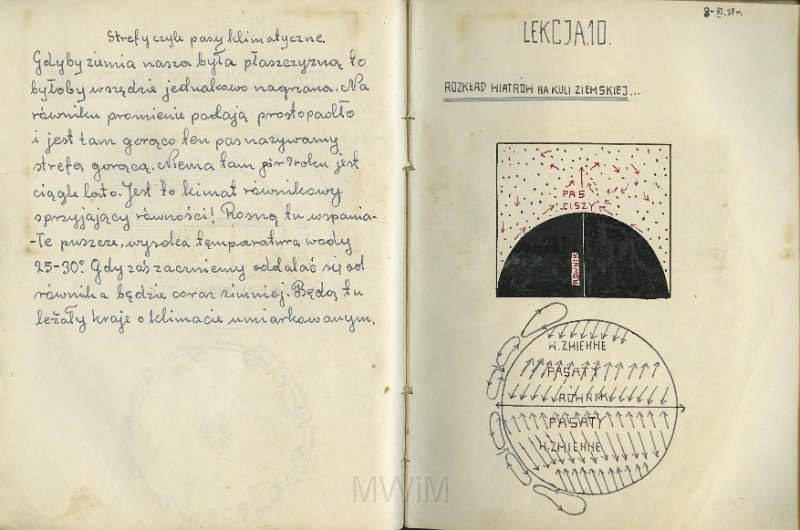 Strefy czyli pasy klimatyczne.
Gdyby ziemia nasza była płaszczyzną to
byłoby wszędzie jednakowo nagrzana. Na
równiku promienie padają prostopadło
i jest tam gorąco ten pas nazywamy
strefą gorącą. Niema tam pór roku jest
ciągle lato. Jest to kimat równikowy
sprzyjający równości! Rosną tu wspania-
-łe puszcze, wysoka temparatura wody
25-30°. Gdy zaś zaczniemy oddalać się od
równika będzie coraz zimniej. Będą tu
leżały kraje o klimacie umiarkowanym.
8-XI.37r.
LEKCJA.10.
ROZKŁAD WIATRÓW NA KULI ZIEMSKIEJ...
PAS
CISZY
RÓWNIK
W. ZMIENNE
PASATY
RÓWNIK
PASATY
W. ZMIENNE
MWiM